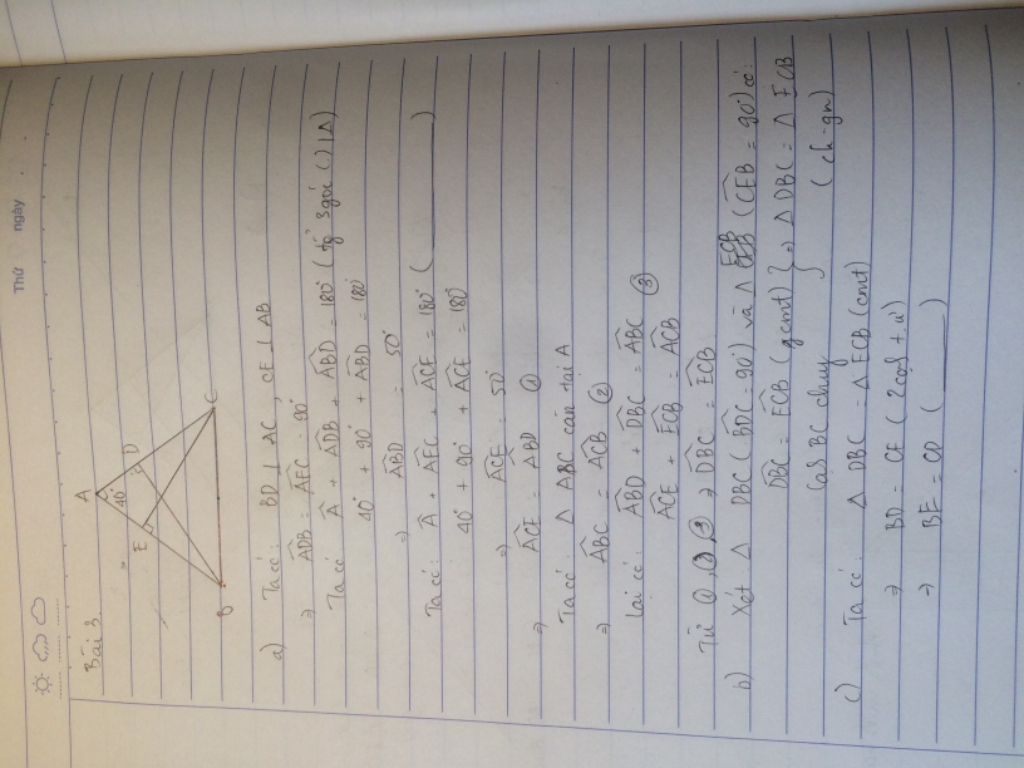 Thứ ngày
Bài 3.
A
40°
E
D
B
C
a) Ta có: BD ⊥ AC, CE ⊥ AB
⇒ ADB = AEC = 90°
Ta có: A + ADB + ABD = 180° (3 góc () 1 Δ)
40° + 90° + ABD = 180°
⇒ ABD = 50°
Ta có: A + AEC + ACE = 180° ( ——— )
40° + 90° + ACE = 180°
⇒ ACE = 50°
⇒ ACE = ABD ①
Ta có: Δ ABC cân tại A
⇒ ABC = ACB ②
Lại có: ABD + DBC = ABC ③
ACE + ECB = ACB
Từ ①, ②, ③ ⇒ DBC = ECB
b) Xét Δ DBC (BDC = 90°) và Δ ECB (CEB = 90°) có:
DBC = ECB (gcmt) } ⇒ Δ DBC = Δ ECB
Cạnh BC chung (ch-gn)
c) Ta có: Δ DBC = Δ ECB (cmt)
⇒ BD = CE (2 cạnh t.ứ)
⇒ BE = CD ( ——— )